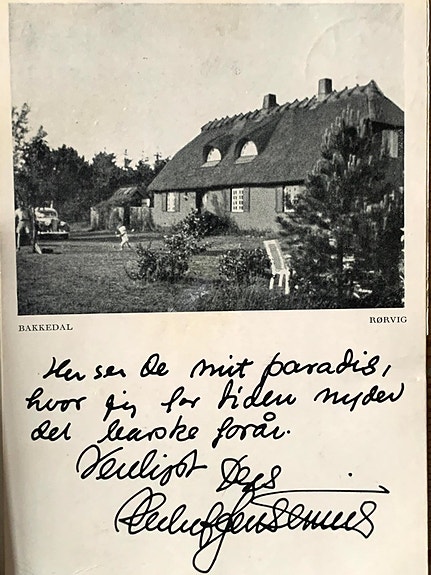 BAKKEDAL
RØRVIG
Her ser De mit paradis,
hvor jeg for tiden nyder
det barske forår.
Venligst Deres